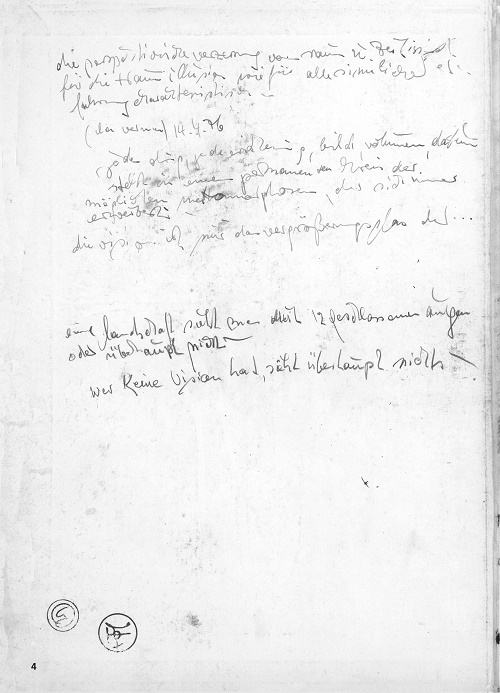 die perspektivische verzerrung von raum u. zeit ist
für die traumillusion wie für alle sinnliche
charakteristisch –
14.4.76
jedes ding, jede erscheinung, bild, volumen, datum
steht in einem permanenten kreis der
möglichen metamorphosen, des sich immer
die vision ist nur das vergrößerungsglas der ...
eine landschaft sieht man mit 12 geschlossenen augen
oder überhaupt nicht –
wer keine vision hat, sieht überhaupt nichts –
4